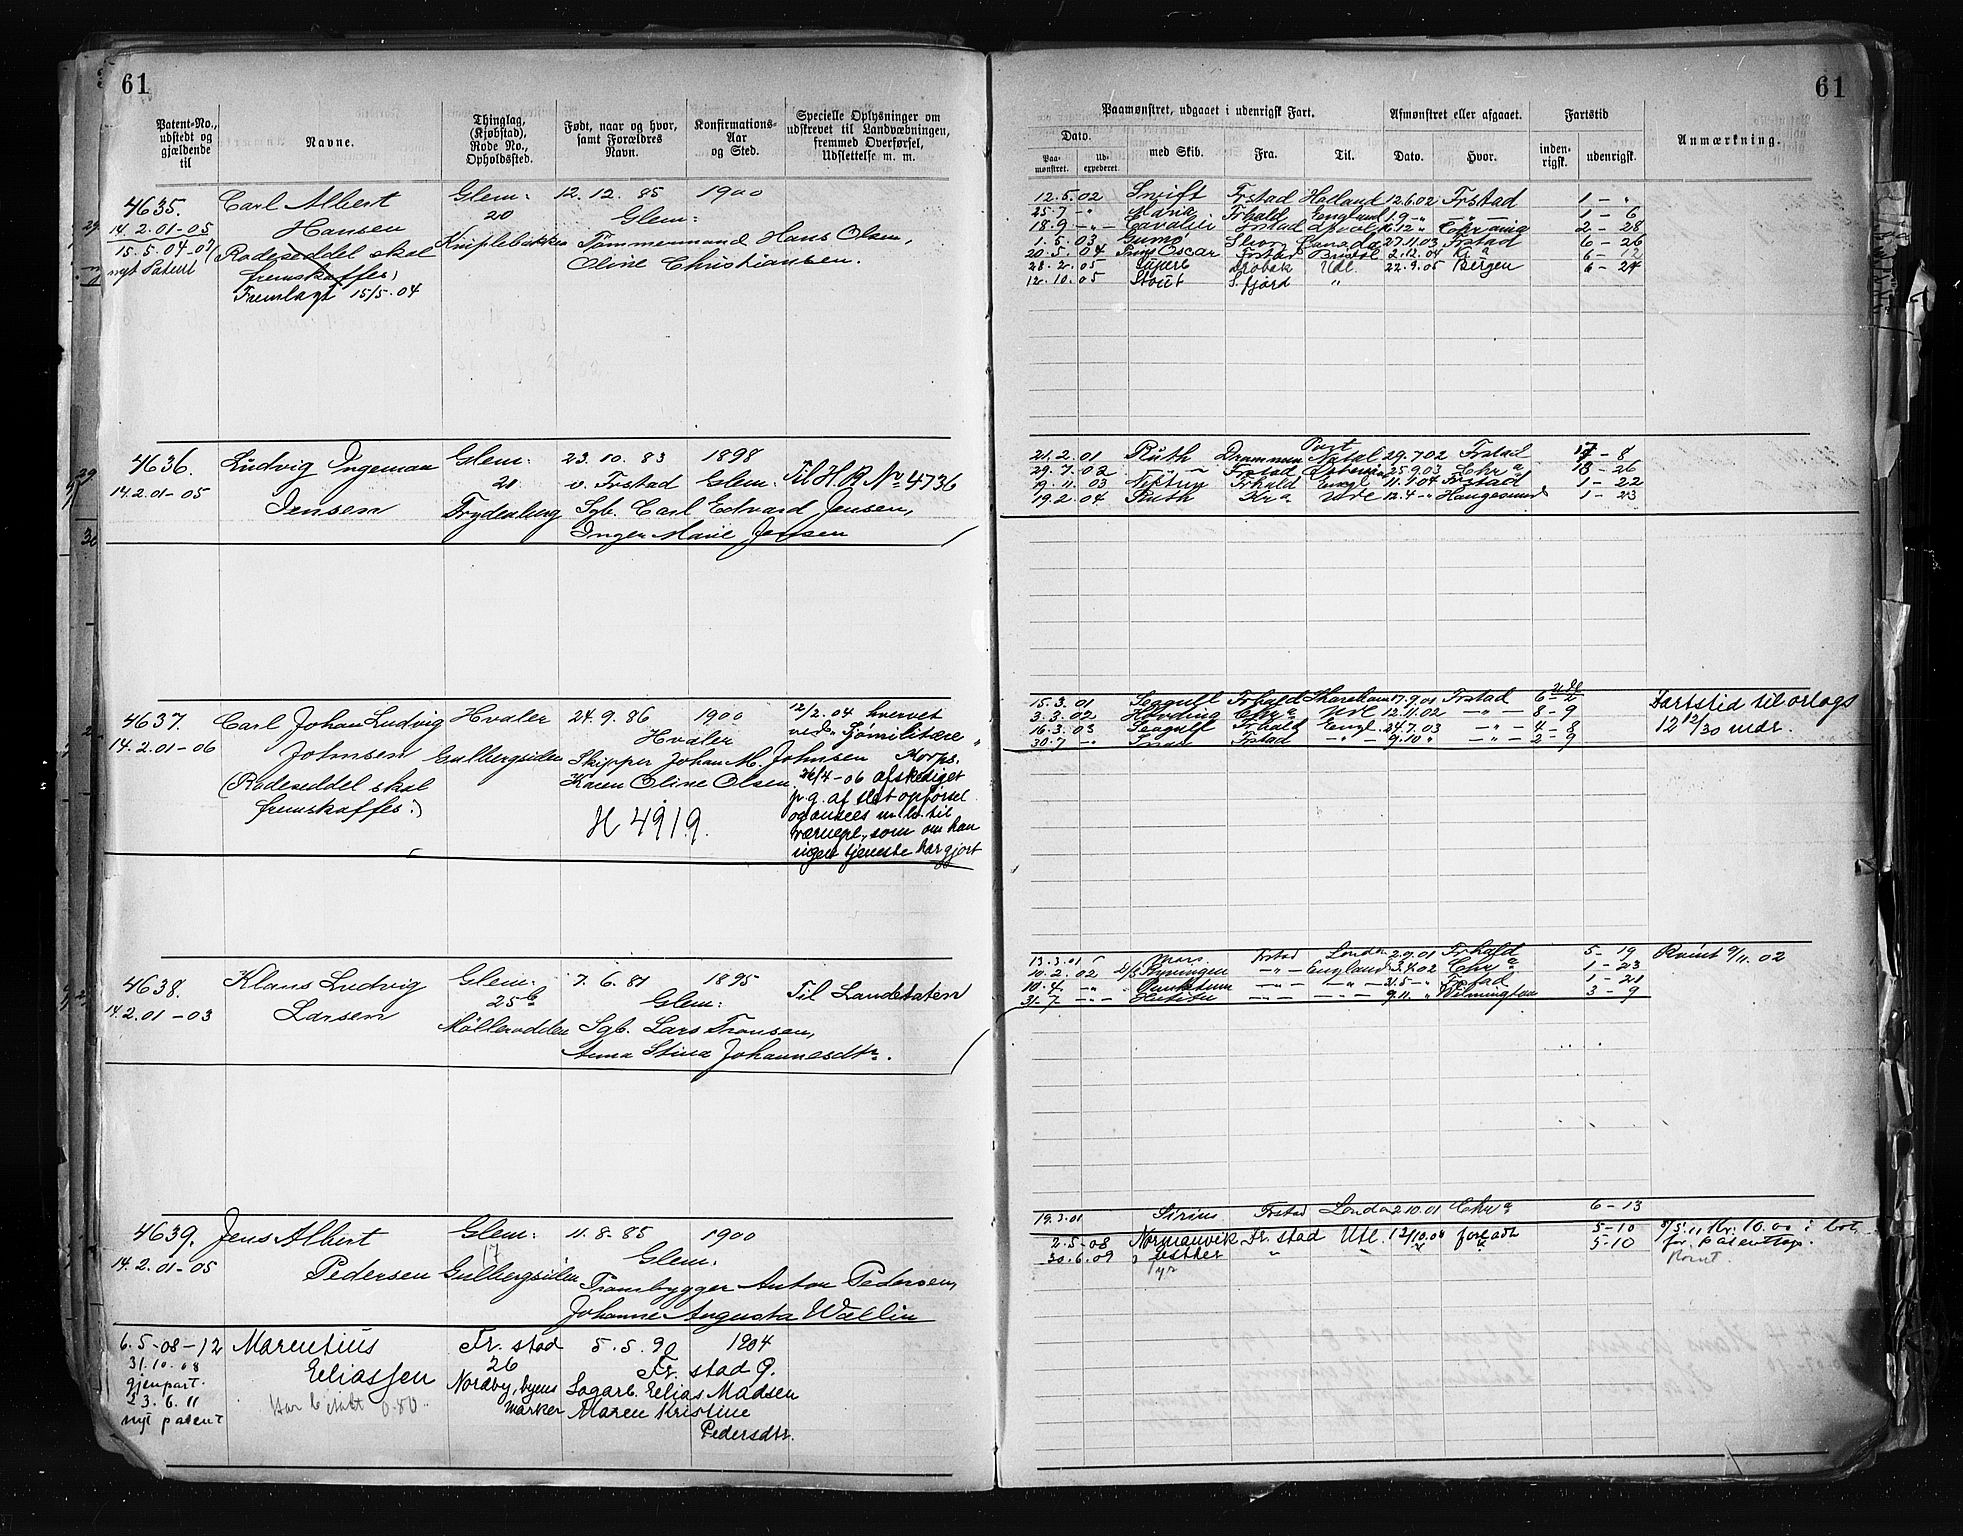 61
61
Patent-No., udstedt og gjældende til
Navne.
Thinglag, (Kjøbstad), Rode No., Opholdssted.
Født, naar og hvor, samt Forældres Navn.
Konfirmations-Aar og Sted.
Specielle Oplysninger om udskrevet til Landvæbningen, fremmed Overførsel, Udslettelse m. m.
Paamønstret, udgaaet i udenrigsk Fart.
Dato.
Paa-mønstret.
Ud-expederet.
med Skib.
Fra.
Til.
Afmønstret eller afgaaet.
Dato.
Hvor.
Fartstid
inden-rigsk.
udenrigsk.
Anmærkning.
4635. Carl Albert Glem: 12. 12. 85 1900
14.2.01-05 Hansen 20 Glem:
15.5.04-07 Rodeseddel skal Kniplebakken Tømmermand Hans Olsen,
nyt Patent fremskaffes Oline Christiansen.
Fremlagt 15/5.04
12.5.02 Swift Frstad Holland 12.6.02 Frstad 1 - "
25.7 -"- Frhald England 1.9 -"- 1 - 6
18.9 -"- Cavalier Frstad 2 - 28
1.5.03 Canada 27.11.03 Frstad 6 - 26
20.5.04 Prins Oscar Frstad Bristol 2.12.04 Kra 6 - 12
28.2.05 Superb Drøbak Udl. 22.9.05 Bergen 6 - 24
12.10.05 Stout S.fjord "
4636. Ludvig Ingeman Glem: 23. 10. 83 1898
14.2.01-05 Jensen 21 v. Frstad Glem: Til H.R. Nr 4736
Trydenborg Sgb. Carl Edvard Jensen,
Inger Marie Jensen
21.2.01 Ruth Drammen Port Natal 29.7.02 Frstad 17 - 8
29.7.02 -"- Frstad 25.9.03 Chra 13 - 26
19.11.03 Neptun Frhald Engl. 11.1.04 Frstad 1 - 22
19.2.04 Ruth Kra Udl 12.4 -"- Haugesund 1 - 23
4637. Carl Johan Ludvig Hvaler 24. 9. 86 1900 12/2.04 hvervet
14.2.01-06 Johnsen Gulbergsiden Hvaler ved Sømilitære
(Rodeseddel skal Skipper Johan M. Johnsen Korps.
fremskaffes:) Karen Oline Olsen. 24/4-06 afskediget
H 4919. p.g. af slet opførsel
og ansees m. h. til
værnepl., som om han
ingen tjeneste har gjort
15.3.01 Seagull Frhald 17.9.01 Frstad 6 - 2
3.3.02 Høvding Chra Udl 12.11.02 -"- 8 - 9
16.3.03 Seagull Frhald Engl. 24.7.03 -"- 4 - 8
30.7 -"- Frstad -"- 9.10 " -"- 2 - 9
Fartstid til orlogs
12 12/30 mdr.
4638. Klaus Ludvig Glem: 7. 6. 81 1895 Til Landetaten
14.2.01-03 Larsen 25b Glem:
Mølleroddden Sgb. Lars Fransen,
Anna Stina Johannesdtr.
13.3.01 Mars Frstad London 2.9.01 Frhald 5 - 19 Rømt 9/11.02
10.2.02 -"- England 3.4.02 Chra 1 - 23
10.4. -"- -"- -"- 31.5 -"- Frstad 1 - 21
31.7 -"- -"- -"- 9.11 " Wilmington 3 - 9
4639. Jens Albert Glem: 11. 8. 85 1900
14.2.01-05 Pedersen 17 Glem:
Gulbergsiden Prambygger Anton Pedersen,
Johanne Augusta Wallin
19.3.01 Sirius Frstad London 2.10.01 Chra 6 - 13
6.5-08-12 Marentius Fr. stad 5. 5. 90 1904
31.10.08 Eeliassen 26 Fr. stad G.
gjenpart. Nordby, byens Sagarb. Eelias Madsen
23.6.11 marker Maren Kristine
nyt patent Pedersdtr.
2.5-08 Normanvik Fr. stad Udl. 12/10.08 5-10
30.6.09 Esther " 5-10
31/5.11 Kr. 10.00 i bot
for patenttap.
Rømt.